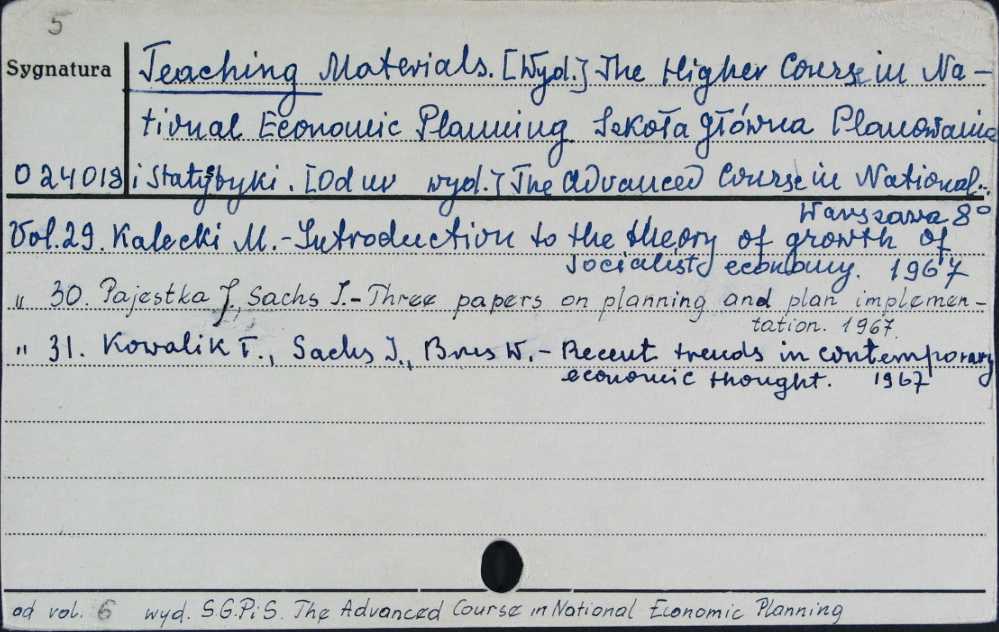 5
Sygnatura Teaching Materials. [Wyd.] The Higher Course in Na-
tional Economic Planning Szkoła Główna Planowania
024018 i Statystyki. [Od nr wyd.] The Advanced Course in National..
Warszawa 8°
Vol. 29. Kalecki M. - Introduction to the theory of growth of
socialist economy. 1967
" 30. Pajestka J., Sachs I. - Three papers on planning and plan implemen-
tation. 1967
" 31. Kowalik T., Sachs I., Brus W. - Recent trends in contemporary
economic thought. 1967
od vol. 6 wyd. S.G.P.i S. The Advanced Course in National Economic Planning